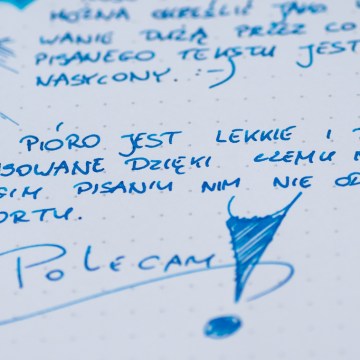 MOŻNA OKREŚLIĆ JAKO
WANIE DUŻĄ PRZEZ CO
PISANEGO TEKSTU JEST
NASYCONY. :-)
PIÓRO JEST LEKKIE I
SOWANE DZIĘKI CZEMU
GIM PISANIU NIM NIE OD
ORTU.
POLECAM!